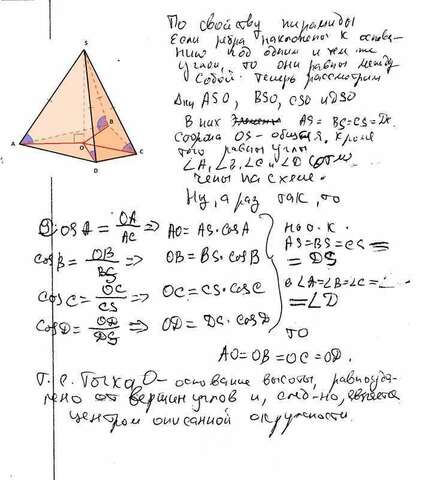 По свойству пирамиды
Если ребра наклонены к основа-
нию под одним и тем же
углом, то они равны между
собой. Теперь рассмотрим
ASO, BSO, CSO и DSO
В них AS = BS = CS = DS.
Сторона OS - общая, кроме
того равны углы
∠A, ∠B, ∠C и ∠D отме-
чены на схеме.
Ну, а раз так, то
S
A
B
O
C
D
cosA = OA/AC => AO = AS·cosA
cosB = OB/BS => OB = BS·cosB
cosC = OC/CS => OC = CS·cosC
cosD = OD/DS => OD = DS·cosD
AS = BS = CS =
= DS
∠A = ∠B = ∠C =
= ∠D
то
AO = OB = OC = OD.
Т.е. Точка O - основание высоты, равноуда-
лено от вершин углов и, след-но, является
центром описанной окружности.